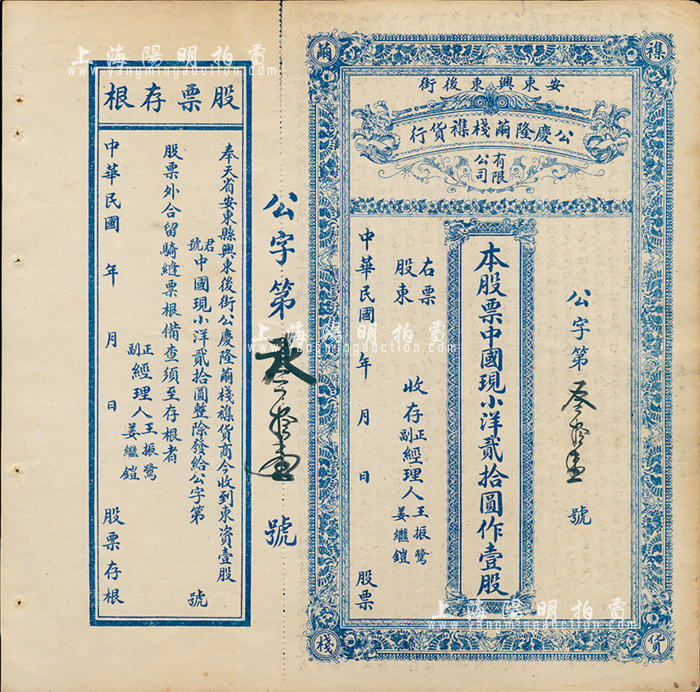 繭
襍
安東興東後街
公慶隆繭棧襍貨行
有限公司
公字第叁拾壹號
本股票中國現小洋貳拾圓作壹股
右票股東 收存
正副經理人王振鷺姜繼鎧
中華民國 年 月 日 股票
棧
貨
公字第叁拾壹號
股票存根
奉天省安東縣興東後街公慶隆繭棧襍貨商今收到東資壹股
君號中國現小洋貳拾圓整除發給公字第 號
股票外合留騎縫票根備查須至存根者
正副經理人王振鷺姜繼鎧
中華民國 年 月 日 股票存根
上海陽明拍賣
www.yangmingauction.com
上海陽明拍賣
www.yangmingauction.com
上海陽明拍賣
www.yangmingauction.com